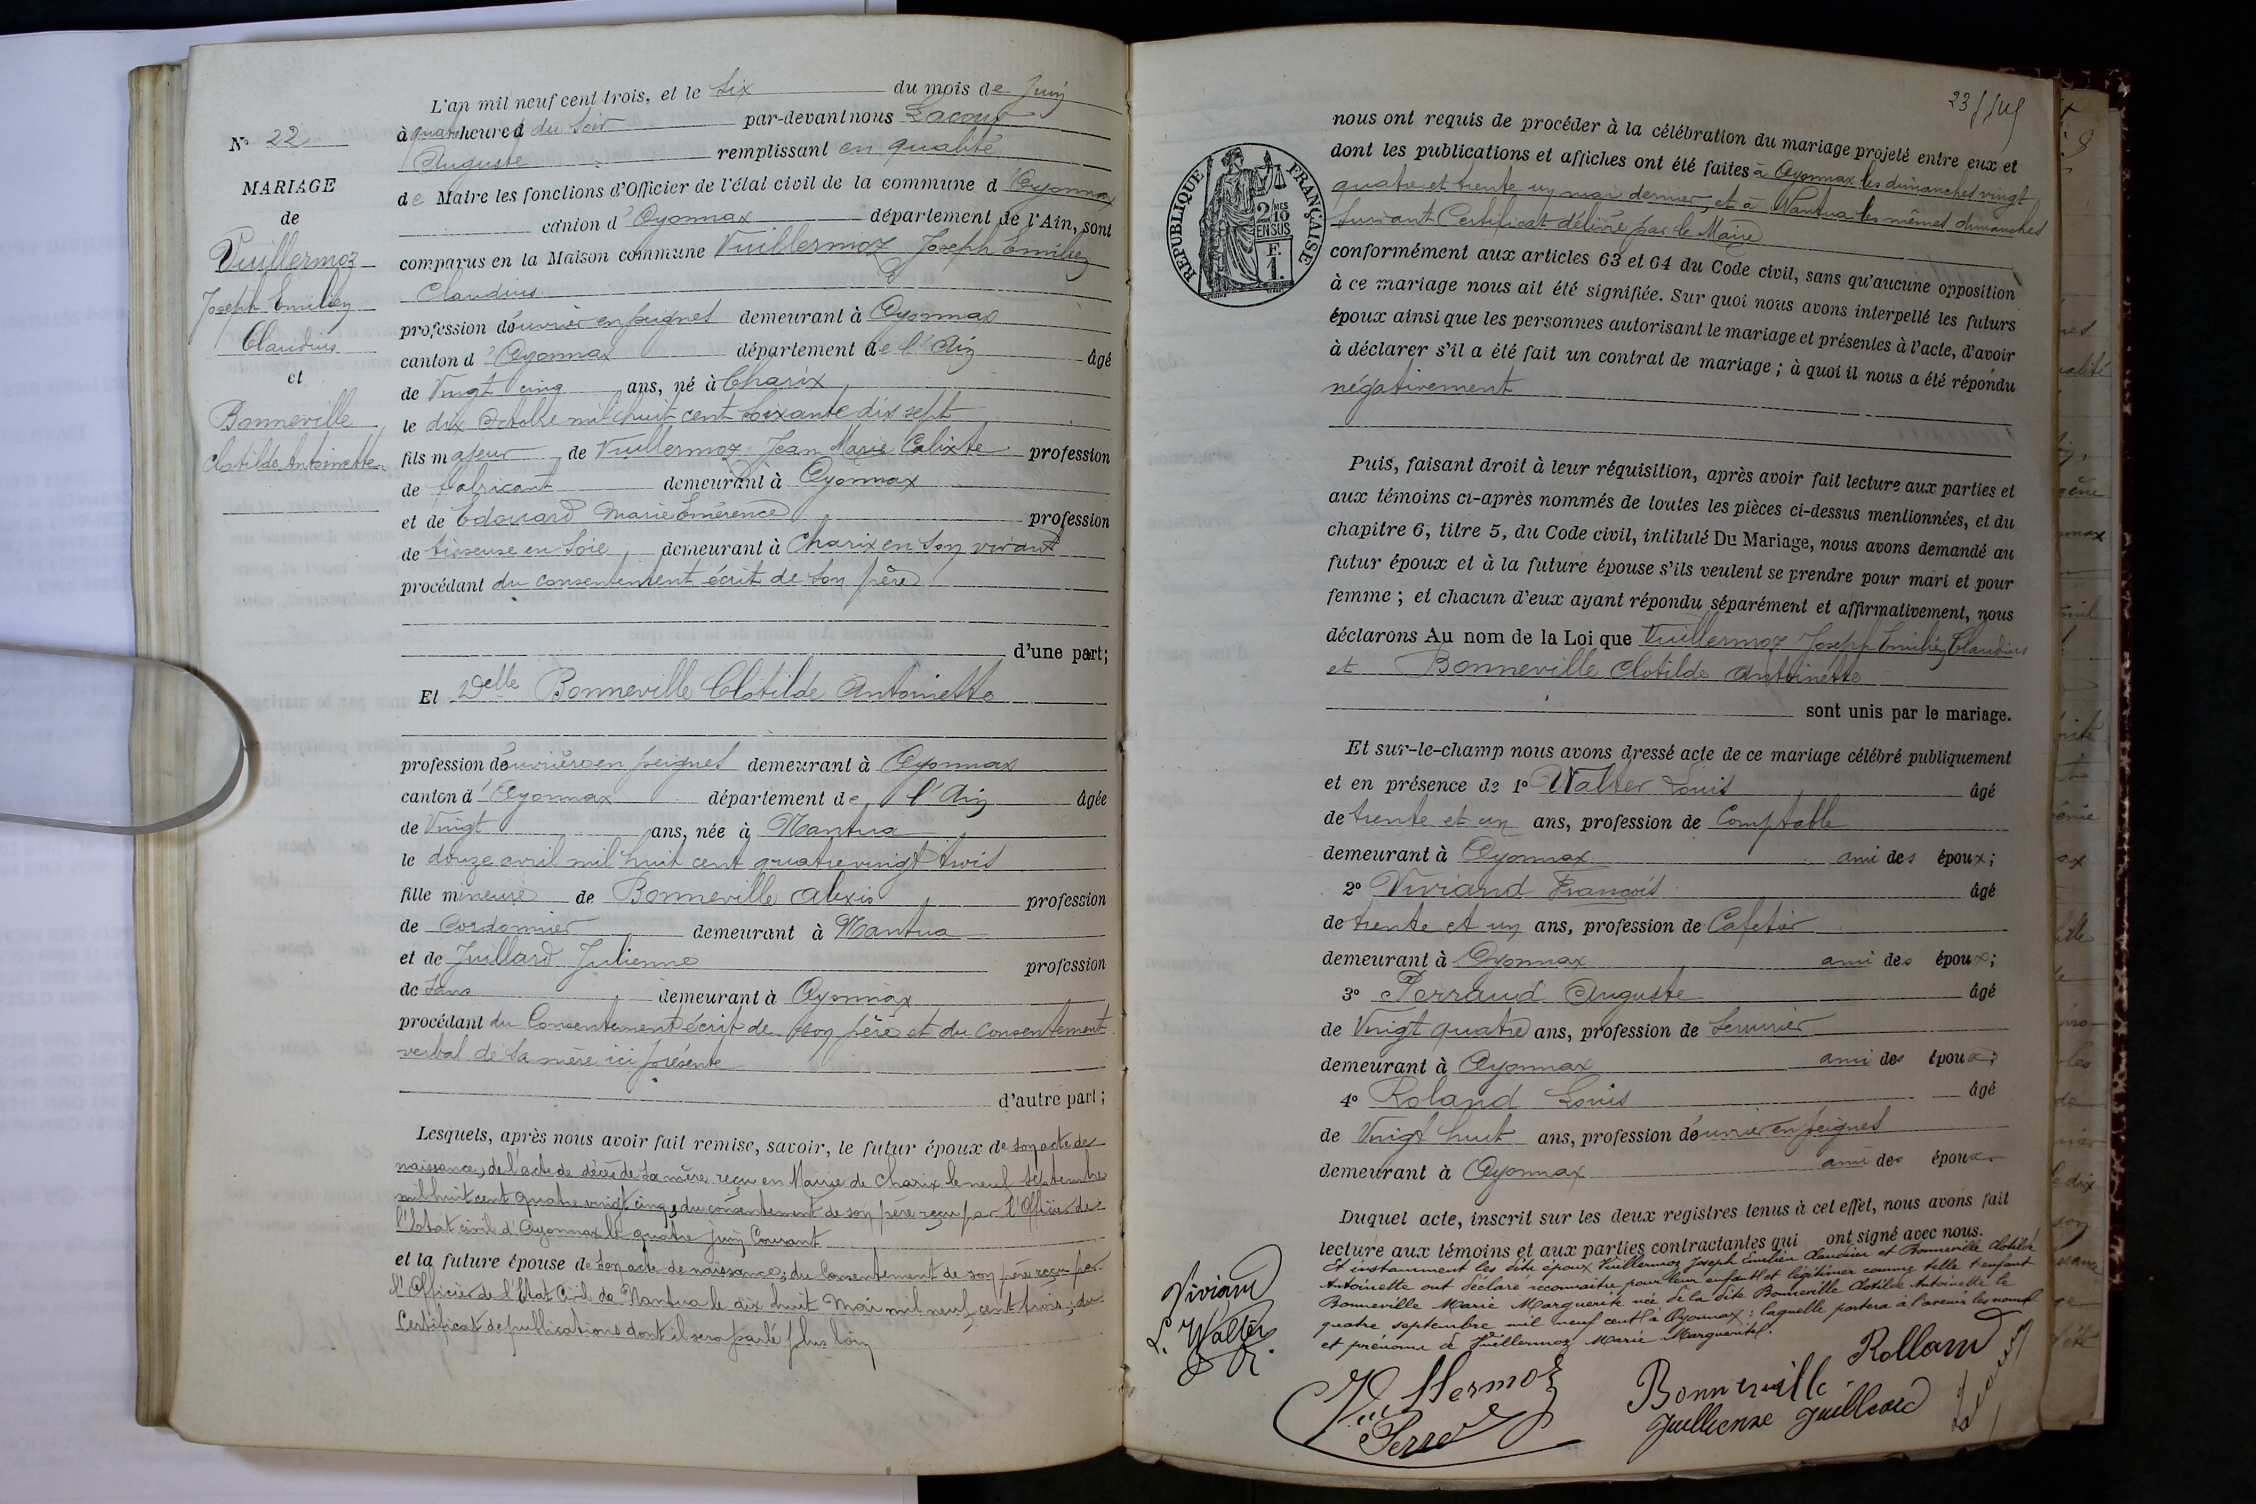 N° 22
MARIAGE
de
Vuillermoz
Joseph Emilien
Claudius
et
Bonneville
Clotilde Antoinette
L'an mil neuf cent trois, et le six du mois de Juin
à quatre heures du soir par-devant nous Lacour
Auguste remplissant en qualité
de Maire les fonctions d'Officier de l'état civil de la commune d'Oyonnax
canton d'Oyonnax département de l'Ain, sont
comparus en la Maison commune Vuillermoz Joseph Emilien
Claudius
profession d'ouvrier en peignes demeurant à Oyonnax
canton d'Oyonnax département de l'Ain âgé
de Vingt cinq ans, né à Charix
le dix Octobre mil huit cent soixante dix sept
fils majeur de Vuillermoz Jean Marie Calixte profession
de fabricant demeurant à Oyonnax
et de Edouard Marie Emérence profession
de tisseuse en soie, demeurant à Charix en son vivant
procédant du consentement écrit de son père
d'une part;
Et Delle Bonneville Clotilde Antoinette
profession d'ouvrière en peignes demeurant à Oyonnax
canton d'Oyonnax département de l'Ain âgée
de Vingt ans, née à Nantua
le douze avril mil huit cent quatre vingt trois
fille mineure de Bonneville Alexis profession
de Cordonnier demeurant à Nantua
et de Juillard Julienne profession
de sans demeurant à Oyonnax
procédant du Consentement écrit de son père et du consentement
verbal de sa mère ici présente
d'autre part;
Lesquels, après nous avoir fait remise, savoir, le futur époux de son acte de
naissance, de l'acte de décès de sa mère reçu en Mairie de Charix le neuf septembre
mil huit cent quatre vingt cinq, du consentement de son père reçu par l'Officier de
l'Etat civil d'Oyonnax le quatre juin Courant
et la future épouse de son acte de naissance; du Consentement de son père reçu par
l'Officier de l'Etat Civil de Nantua le dix huit Mai mil neuf cent trois; du
Certificat de publications dont il sera parlé plus loin
23
RÉPUBLIQUE FRANÇAISE
2 MES
10
EN SUS
F.
1.
nous ont requis de procéder à la célébration du mariage projeté entre eux et
dont les publications et affiches ont été faites à Oyonnax les dimanches vingt
quatre et trente un mai dernier, et à Nantua les mêmes dimanches
suivant Certificat délivré par le Maire
conformément aux articles 63 et 64 du Code civil, sans qu'aucune opposition
à ce mariage nous ait été signifiée. Sur quoi nous avons interpellé les futurs
époux ainsi que les personnes autorisant le mariage et présentes à l'acte, d'avoir
à déclarer s'il a été fait un contrat de mariage; à quoi il nous a été répondu
négativement
Puis, faisant droit à leur réquisition, après avoir fait lecture aux parties et
aux témoins ci-après nommés de toutes les pièces ci-dessus mentionnées, et du
chapitre 6, titre 5, du Code civil, intitulé Du Mariage, nous avons demandé au
futur époux et à la future épouse s'ils veulent se prendre pour mari et pour
femme; et chacun d'eux ayant répondu séparément et affirmativement, nous
déclarons Au nom de la Loi que Vuillermoz Joseph Emilien Claudius
et Bonneville Clotilde Antoinette
sont unis par le mariage.
Et sur-le-champ nous avons dressé acte de ce mariage célébré publiquement
et en présence de 1° Walter Louis âgé
de trente et un ans, profession de Comptable
demeurant à Oyonnax ami des époux;
2° Viviand François âgé
de trente et un ans, profession de Cafetier
demeurant à Oyonnax ami des époux;
3° Perraud Auguste âgé
de Vingt quatre ans, profession de Serrurier
demeurant à Oyonnax ami des époux;
4° Roland Louis âgé
de Vingt huit ans, profession d'ouvrier en peignes
demeurant à Oyonnax ami des époux
Duquel acte, inscrit sur les deux registres tenus à cet effet, nous avons fait
lecture aux témoins et aux parties contractantes qui ont signé avec nous.
Et instamment les dits époux Vuillermoz Joseph Emilien Claudius et Bonneville Clotilde
Antoinette ont déclaré reconnaître pour leur enfant et légitimer comme telle l'enfant
Bonneville Marie Marguerite née de la dite Bonneville Clotilde Antoinette le
quatre septembre mil neuf cent à Oyonnax: laquelle portera à l'avenir les noms
et prénoms de Vuillermoz Marie Marguerite.
Viviand
L. Walter
Rolland
Vuillermoz
Bonneville
Juillienne Juilliard